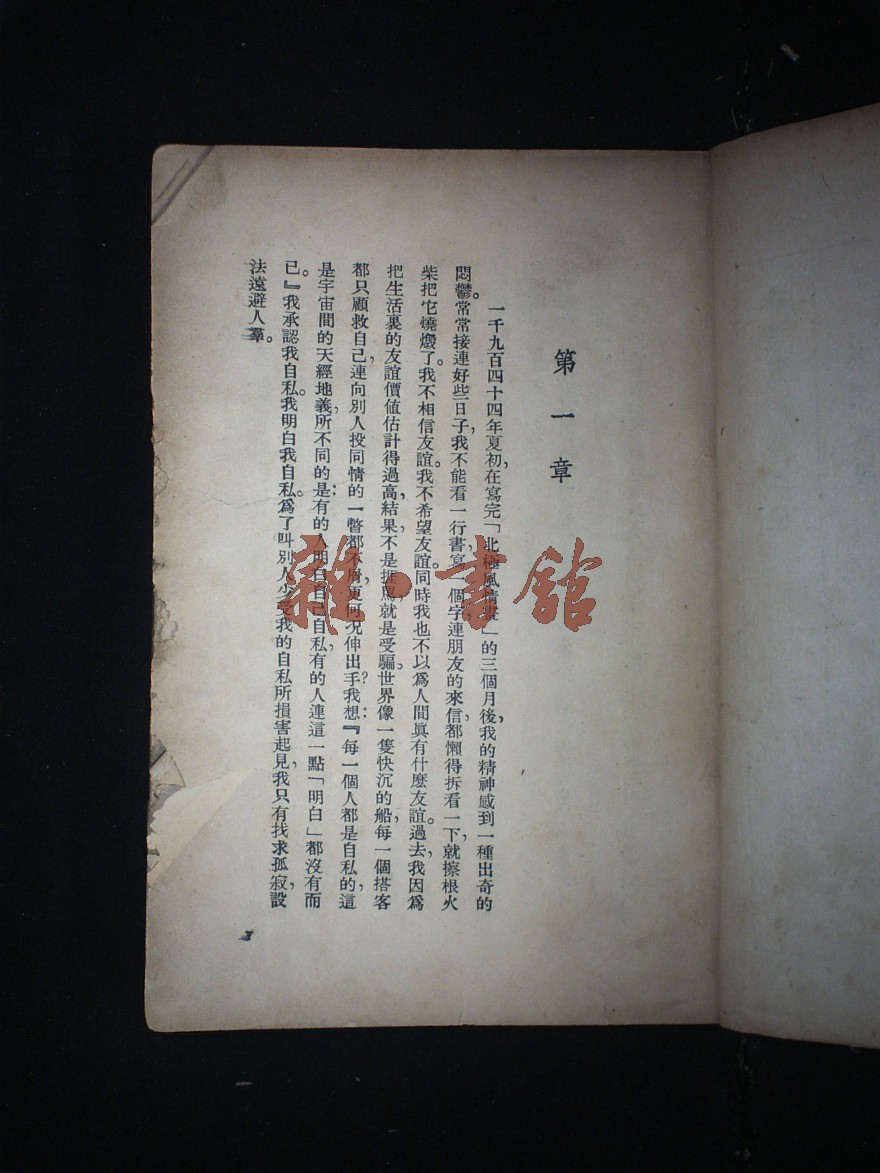 第一章
一千九百四十四年夏初，在寫完「北極風情畫」的三個月後，我的精神感到一種出奇的
悶鬱。常常接連好些日子，我不能看一行書，寫一個字，連朋友的來信，都懶得拆看一下，就擦根火
柴把它燒燬了。我不相信友誼。我不希望友誼。同時我也不以爲人間眞有什麽友誼。過去，我因爲
把生活裏的友誼價值估計得過高，結果不是捱罵，就是受騙。世界像一隻快沉的船，每一個搭客
都只顧救自己，連向別人投同情的一瞥都不屑，更何况伸出手？我想：『每一個人都是自私的，這
是宇宙間的天經地義，所不同的是：有的人明白自己自私，有的人連這一點「明白」都沒有而
已。』我承認我自私。我明白我自私。爲了叫別人少受我的自私所損害起見，我只有找求孤寂，設
法遠避人羣。
1
雜·書館